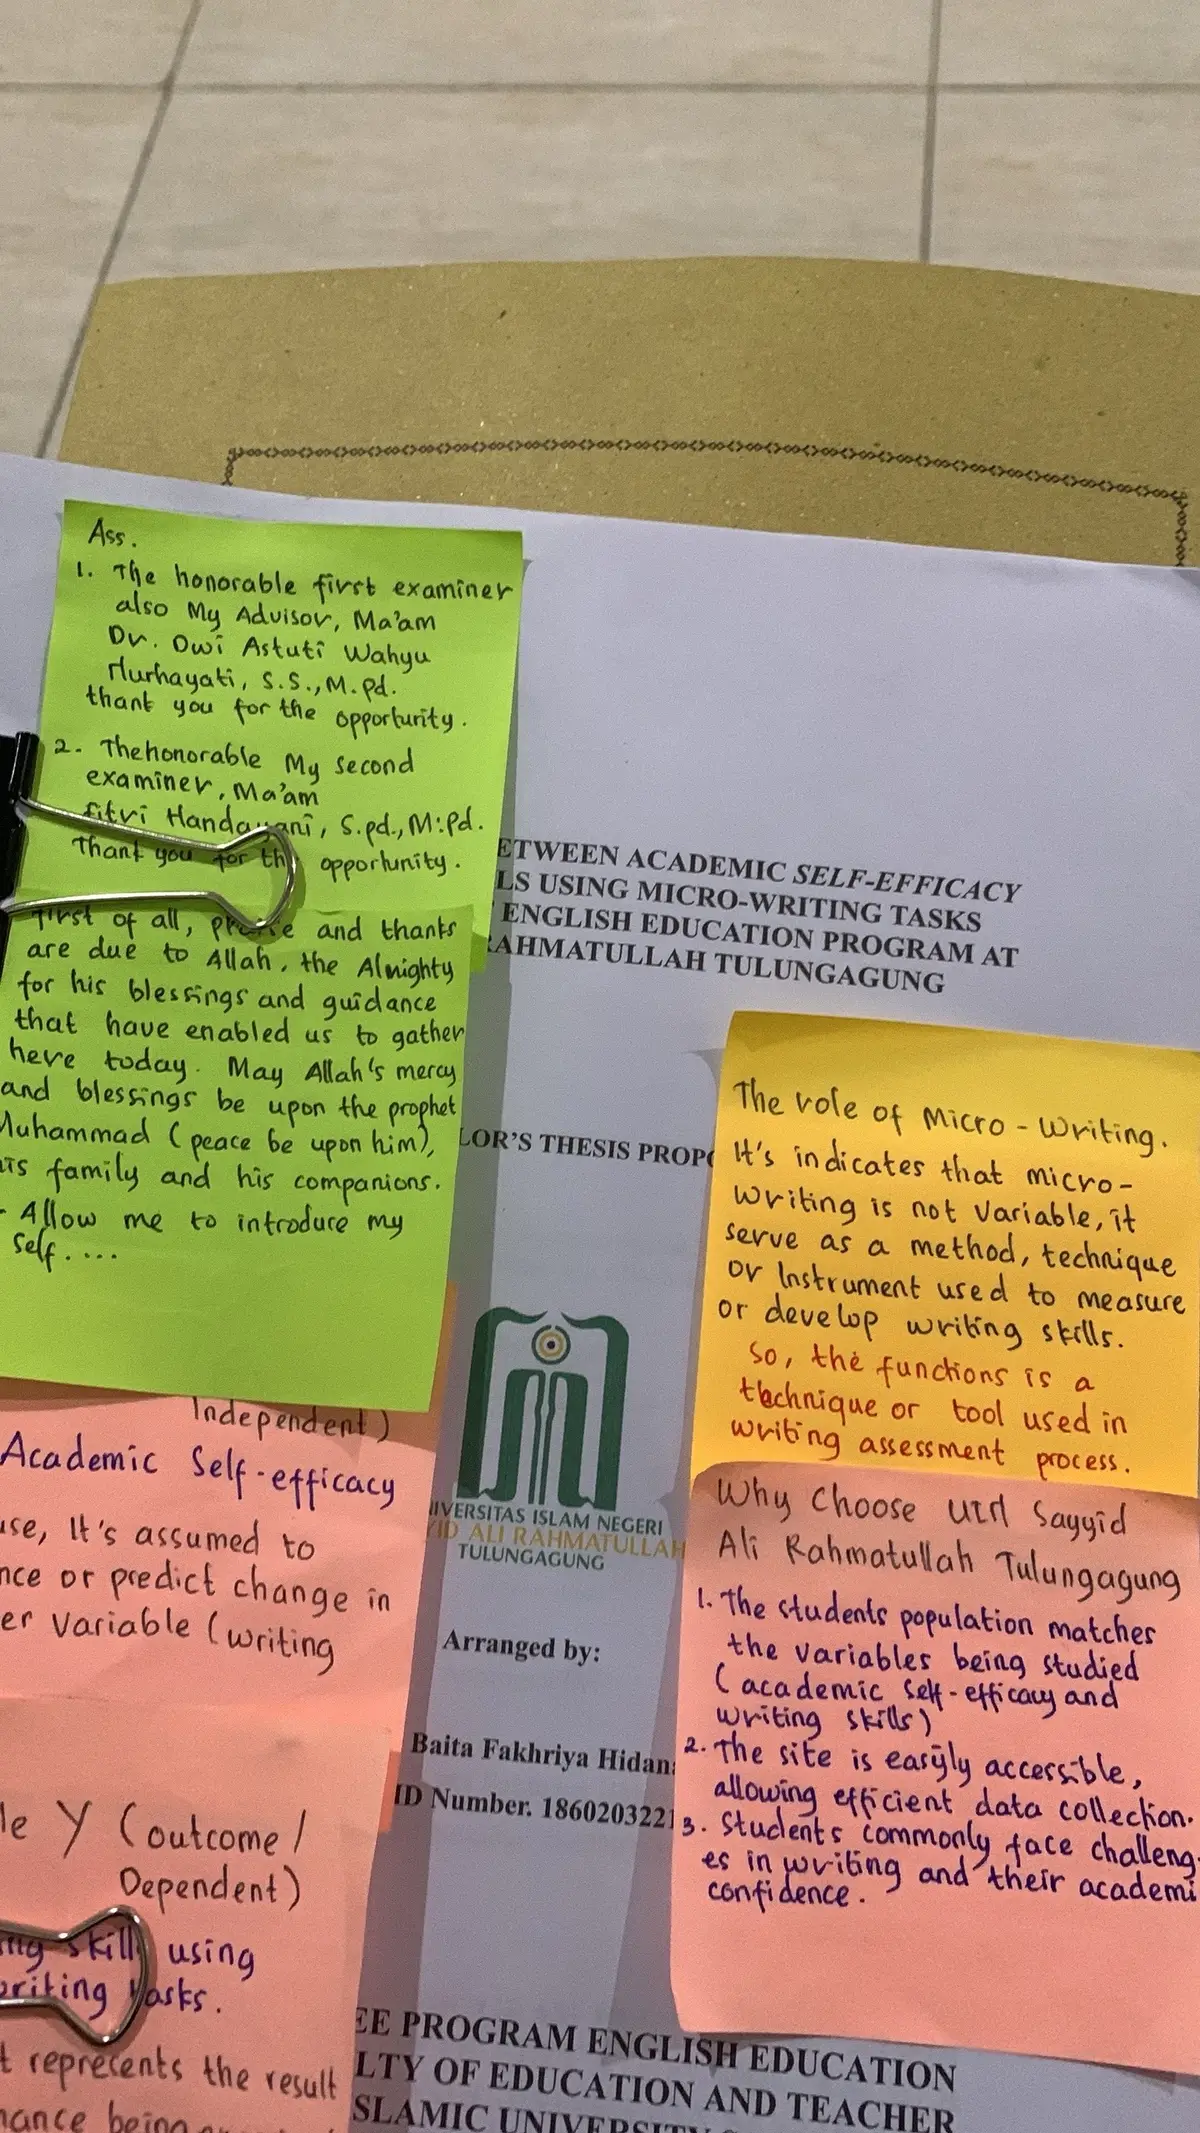 Ass.
1. The honorable first examiner
also My Advisor, Ma'am
Dr. Dwi Astuti Wahyu
Nurhayati, S.S., M.Pd.
thank you for the opportunity.
2. The honorable My second
examiner, Ma'am
Fitri Handayani, S.pd., M.Pd.
Thank you for the opportunity.
First of all, praise and thanks
are due to Allah, the Almighty
for his blessings and guidance
that have enabled us to gather
here today. May Allah's mercy
and blessings be upon the prophet
Muhammad (peace be upon him),
his family and his companions.
- Allow me to introduce my
self....
Independent)
Academic Self-efficacy
use, It's assumed to
nce or predict change in
er variable (writing
le Y (outcome /
Dependent)
ing skill using
writing tasks.
t represents the result
mance being
ETWEEN ACADEMIC SELF-EFFICACY
LS USING MICRO-WRITING TASKS
ENGLISH EDUCATION PROGRAM AT
RAHMATULLAH TULUNGAGUNG
LOR'S THESIS PROPO
The role of Micro-writing.
It's indicates that micro-
writing is not variable, it
serve as a method, technique
or Instrument used to measure
or develop writing skills.
So, the functions is a
technique or tool used in
writing assessment process.
Why Choose UIN Sayyid
Ali Rahmatullah Tulungagung
1. The students population matches
the variables being studied
(academic self-efficacy and
writing skills)
2. The site is easyly accessible,
allowing efficient data collection.
3. Students commonly face challeng-
es in writing and their academi
confidence.
IVERSITAS ISLAM NEGERI
YID ALI RAHMATULLAH
TULUNGAGUNG
Arranged by:
Baita Fakhriya Hidana
ID Number. 1860203221
EE PROGRAM ENGLISH EDUCATION
LTY OF EDUCATION AND TEACHER
SLAMIC UNIVERSITY